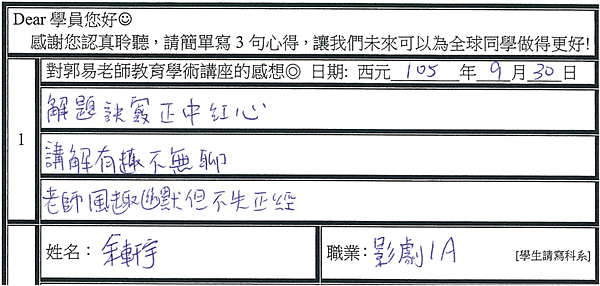 Dear 學員您好☺
感謝您認真聆聽，請簡單寫 3 句心得，讓我們未來可以為全球同學做得更好!
對郭易老師教育學術講座的感想◎ 日期: 西元 105 年 9 月 30 日
1
解題訣竅正中紅心
講解有趣不無聊
老師風趣幽默但不失正經
姓名： 余軒宇
職業: 影劇1A [學生請寫科系]